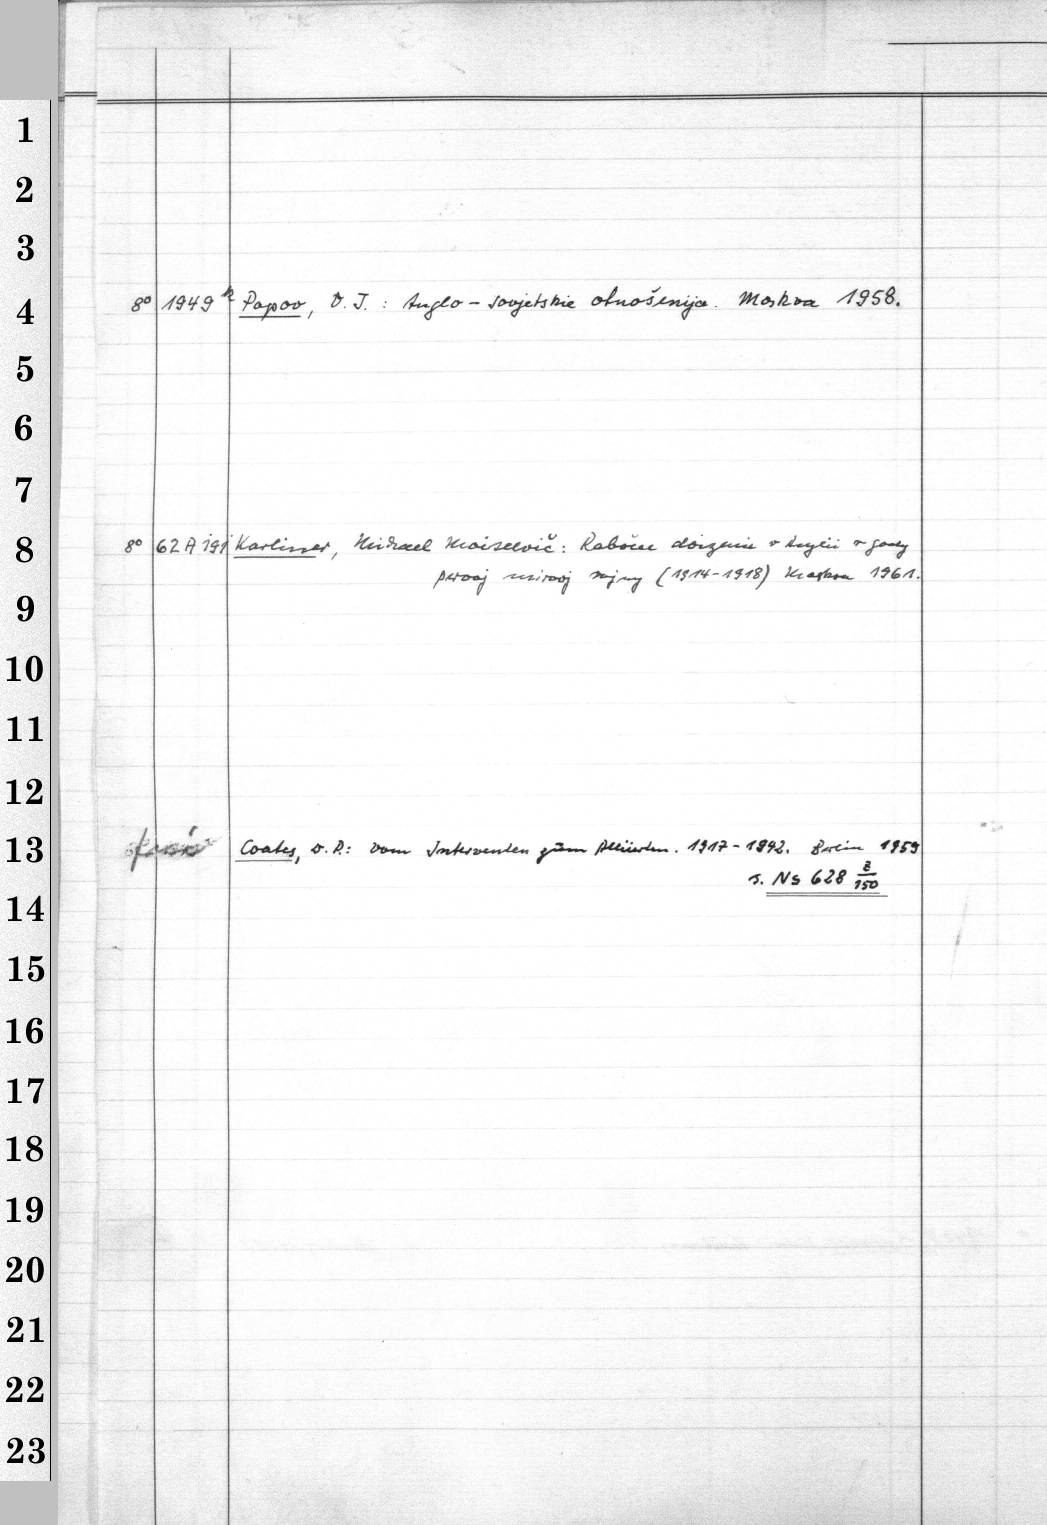 1
2
3
4 8° 1949 k Popov, V. I.: Anglo-sovjetskie otnošenija. Moskva 1958.
5
6
7
8 8° 62 A 191 Karliner, Michael Moiseevič: Rabočee dviženie v Anglii v gody
pervoj mirovoj vojny (1914-1918) Moskva 1961.
9
10
11
12
13 Coates, W. P.: Vom Interventen zum Alliierten. 1917-1942. Berlin 1959
s. Ns 628 Z/150
14
15
16
17
18
19
20
21
22
23